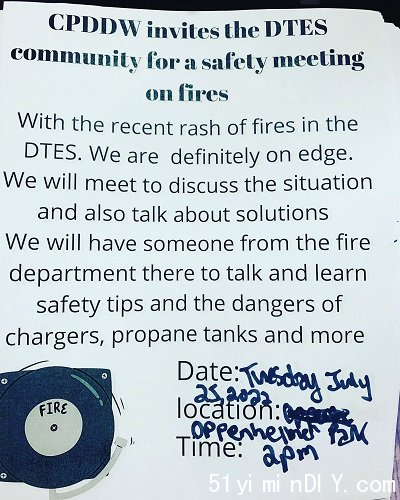 CPDDW invites the DTES
community for a safety meeting
on fires
With the recent rash of fires in the
DTES. We are definitely on edge.
We will meet to discuss the situation
and also talk about solutions
We will have someone from the fire
department there to talk and learn
safety tips and the dangers of
chargers, propane tanks and more
FIRE
Date: Tuesday July
25, 2022
location:
Oppenheimer Park
Time: 2pm
51yiminDIY.com